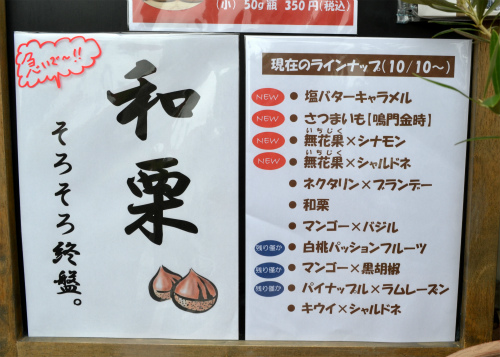 (小) 50g 瓶 350円(税込)
急いで〜!!
和栗
そろそろ終盤。
現在のラインナップ(10/10〜)
NEW ● 塩バターキャラメル
NEW ● さつまいも【鳴門金時】
いちじく
NEW ● 無花果×シナモン
いちじく
NEW ● 無花果×シャルドネ
● ネクタリン×ブランデー
● 和栗
● マンゴー×バジル
残り僅か ● 白桃パッションフルーツ
残り僅か ● マンゴー×黒胡椒
残り僅か ● パイナップル×ラムレーズン
● キウイ×シャルドネ